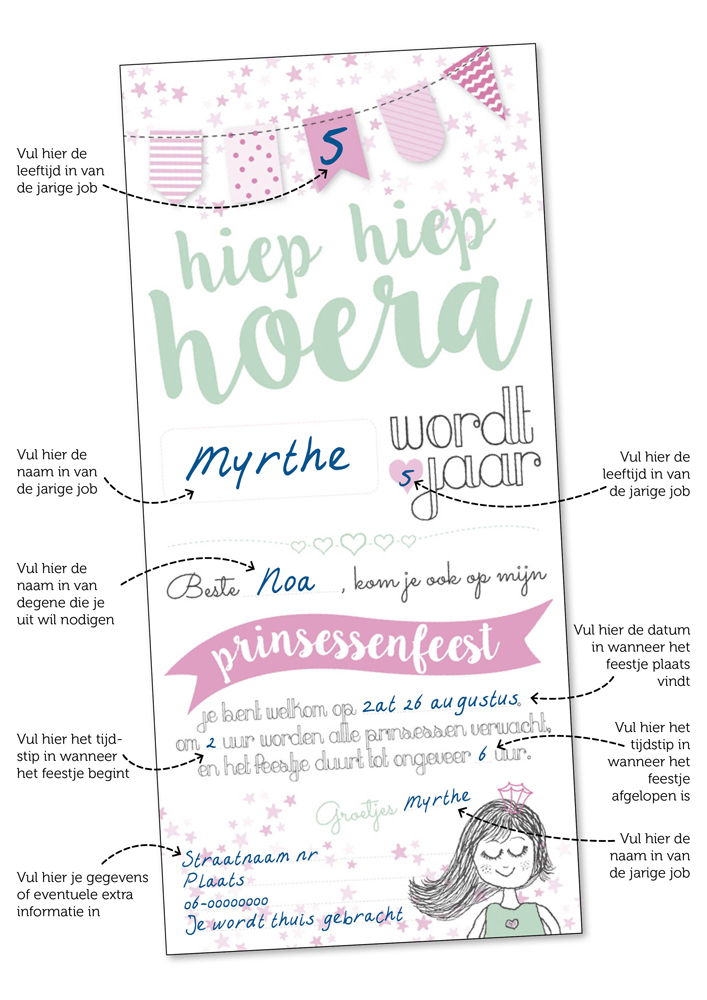 5
Vul hier de
leeftijd in van
de jarige job
hiep hiep
hoera
Vul hier de
naam in van
de jarige job
Myrthe
wordt
5 jaar
Vul hier de
leeftijd in van
de jarige job
Vul hier de
naam in van
degene die je
uit wil nodigen
Beste Noa, kom je ook op mijn
prinsessenfeest
Vul hier de datum
in wanneer het
feestje plaats
vindt
je bent welkom op zat 26 augustus.
om 2 uur worden alle prinsessen verwacht,
en het feestje duurt tot ongeveer 6 uur.
Vul hier het tijd-
stip in wanneer
het feestje begint
Vul hier het
tijdstip in
wanneer het
feestje
afgelopen is
Groetjes Myrthe
Vul hier de
naam in van
de jarige job
Vul hier je gegevens
of eventuele extra
informatie in
Straatnaam nr
Plaats
06-00000000
Je wordt thuis gebracht